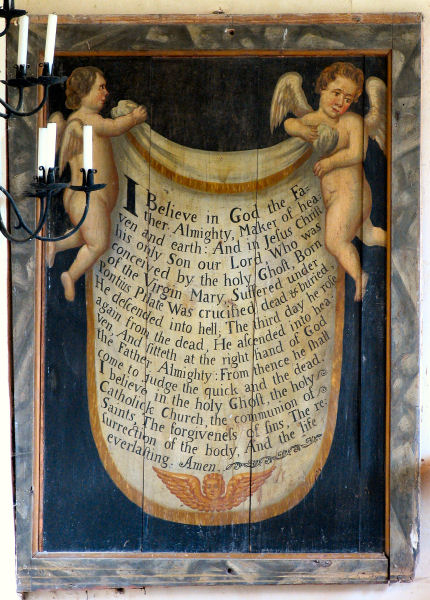 I Believe in God the Fa-
ther Almighty, Maker of hea
ven and earth: And in Jeſus Chriſt
his only Son our Lord, Who was
conceived by the holy Ghoſt, Born
of the Virgin Mary, Suffered under
Pontius Pilate Was crucified dead & buried,
He deſcended into hell, The third day he roſe
again from the dead, He aſcended into hea-
ven, And ſitteth at the right hand of God
the Father Almighty: From thence he ſhall
come to judge the quick and the dead.
I believe in the holy Ghoſt, the holy
Catholick Church, the communion of
Saints, The forgiveneſs of ſins, The re-
ſurrection of the body, And the life
everlaſting. Amen.